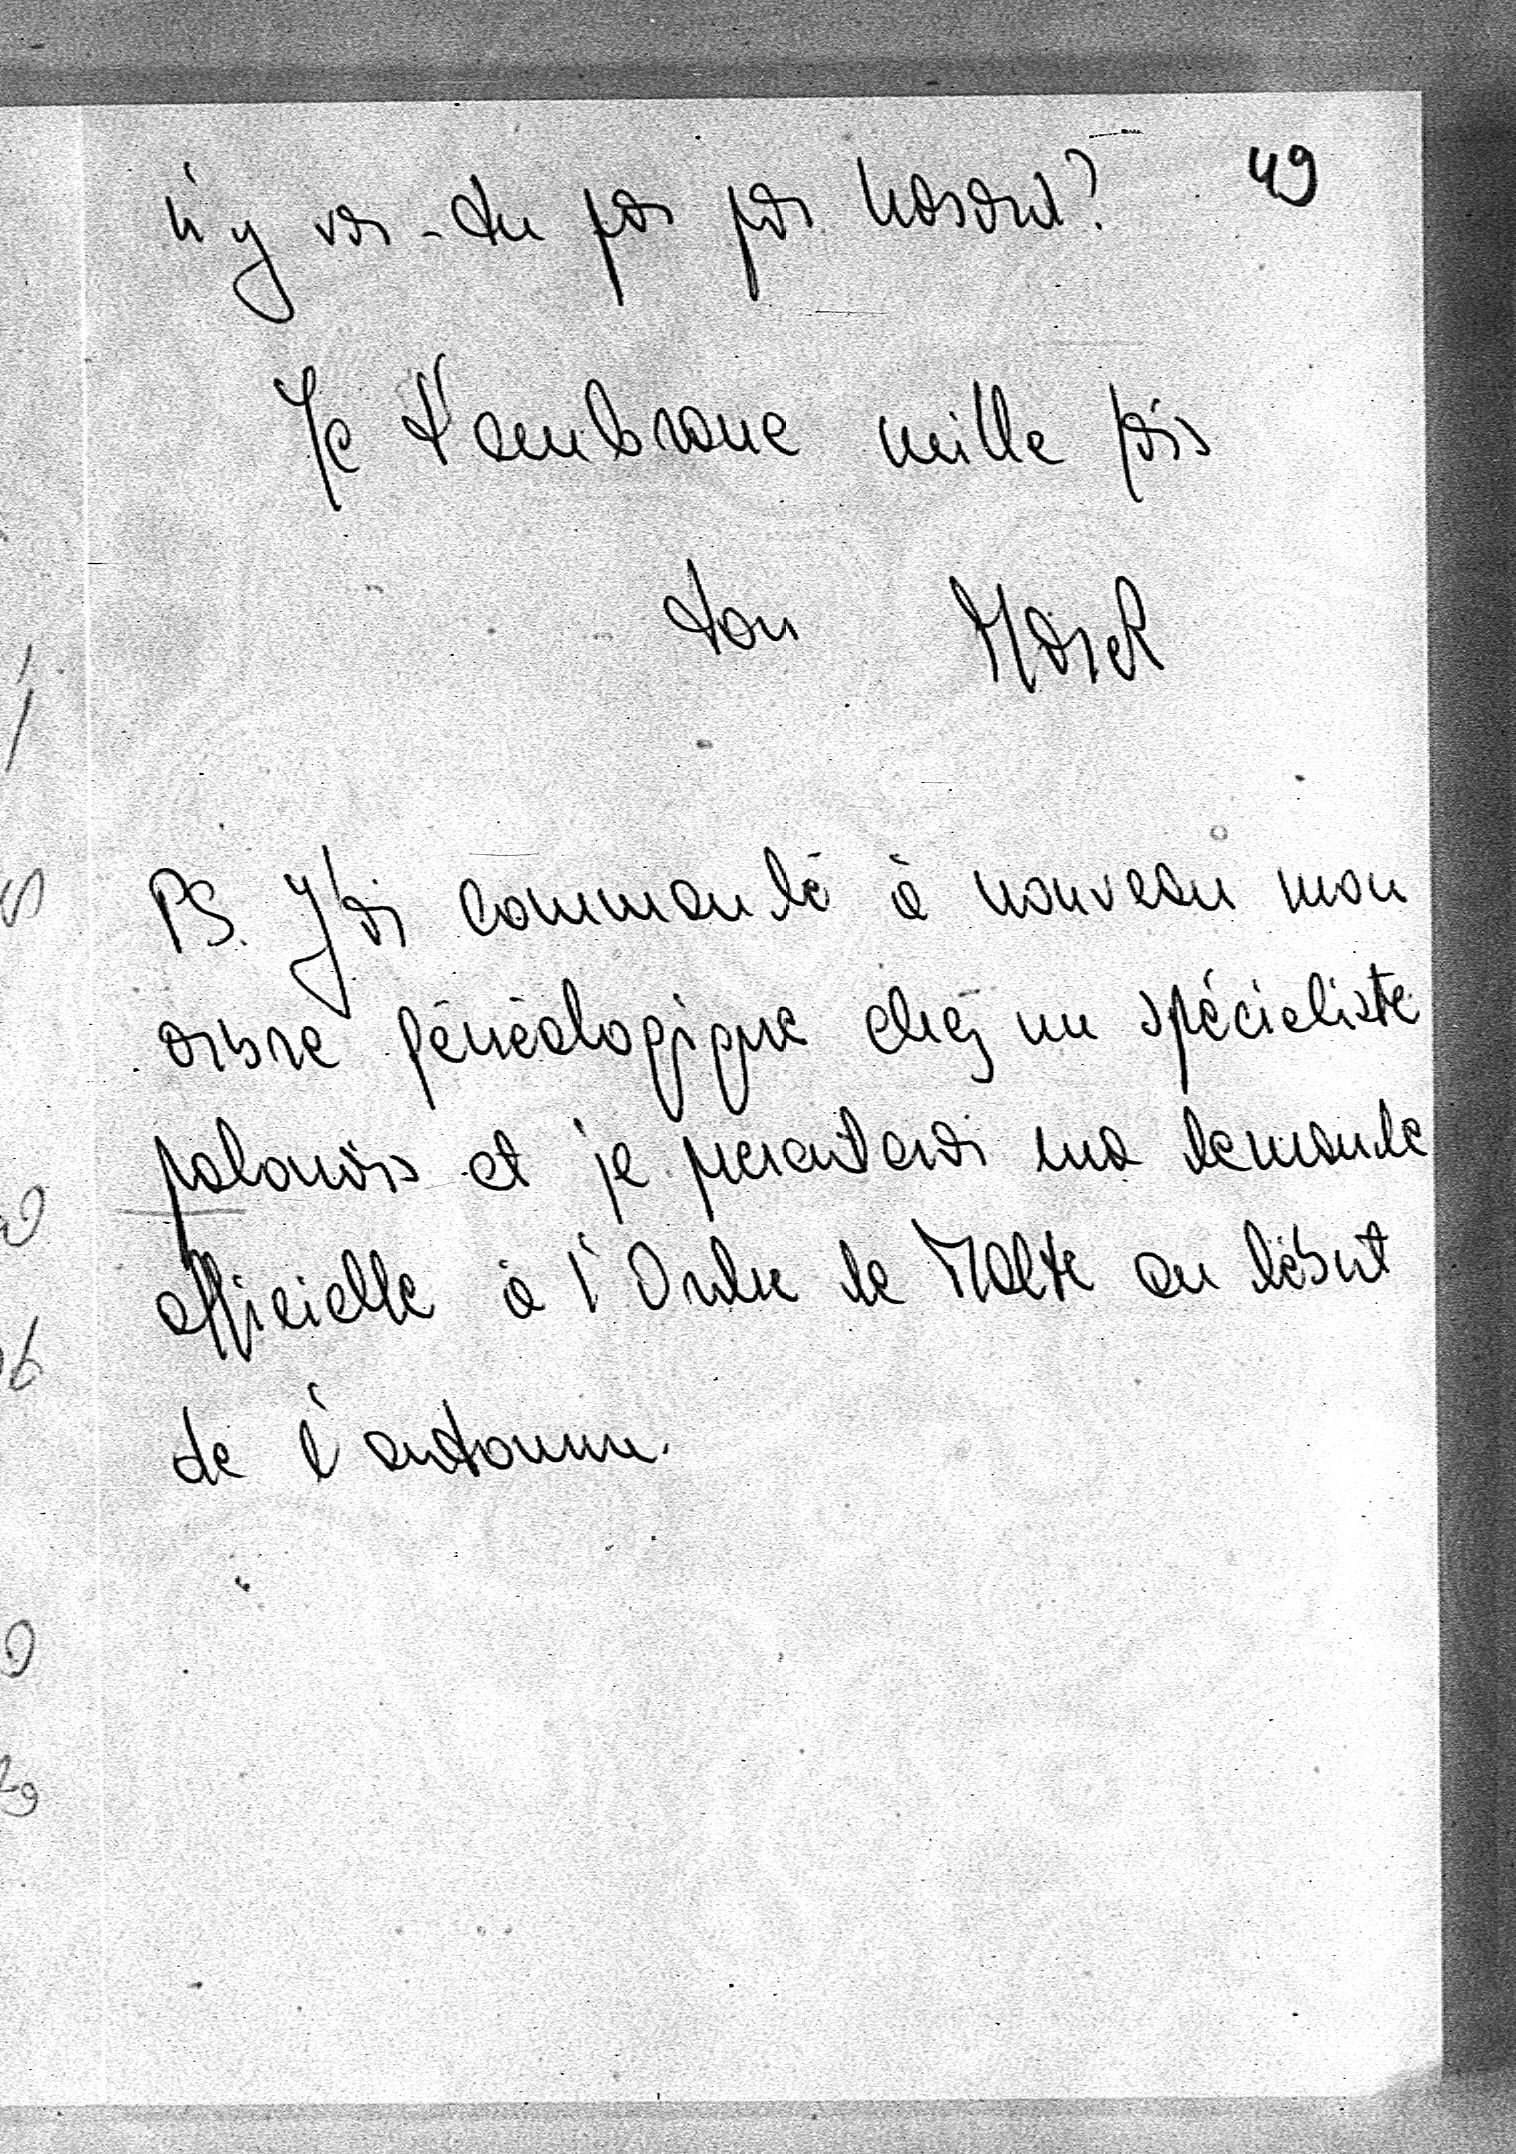 49
n'y vas-tu pas par hasard?
Je t'embrasse mille fois
ton Marek
PS. J'ai commandé à nouveau mon
arbre généalogique chez un spécialiste
polonais et je presenterai ma demande
officielle à l'Ordre de Malte au début
de l'automne.